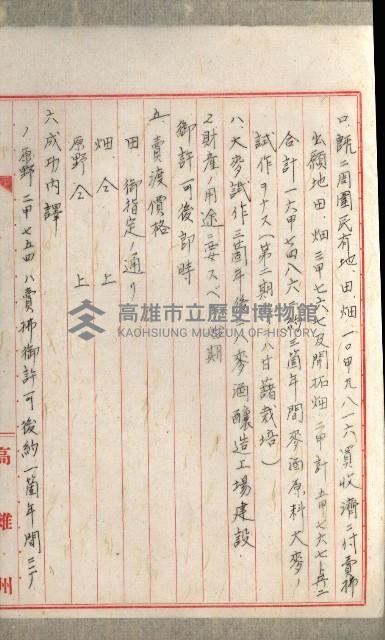 口、既ニ周圍民有地田畑一〇甲九八一六買收濟ニ付賣拂
出願地田、畑三甲七六六七及開拓畑二甲計五甲七六六七ト共ニ
合計一六甲七四八六 三箇年間麥酒原料大麥ノ
試作ヲナス（第二期 ハ甘藷栽培）
八、大麥試作三箇年後 麥酒釀造工場建設
2、財産ノ用途ニ供スベ 期
御許可後即時
五、賣渡價格
田、御指定ノ通リ
畑 仝 上
原野 仝 上
六、成功內譯
1、原野二甲七五四八賣拂御許可後約一箇年間ニテ
高雄州
高雄市立歷史博物館
KAOHSIUNG MUSEUM OF HISTORY